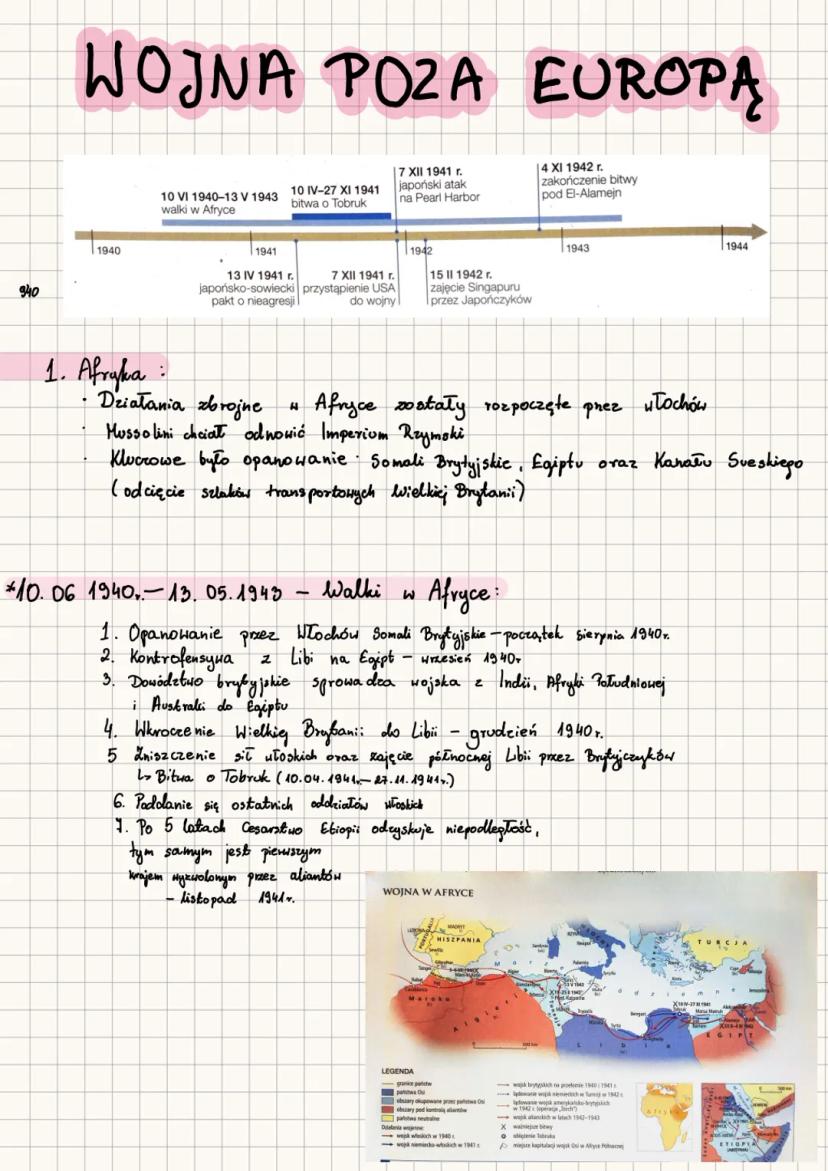 WOJNA POZA EUROPĄ
10 VI 1940–13 V 1943
walki w Afryce
10 IV–27 XI 1941
bitwa o Tobruk
7 XII 1941 r.
japoński atak
na Pearl Harbor
4 XI 1942 r.
zakończenie bitwy
pod El-Alamejn
1940
1941
1942
1943
1944
13 IV 1941 r.
japońsko-sowiecki
pakt o nieagresji
7 XII 1941 r.
przystąpienie USA
do wojny
15 II 1942 r.
zajęcie Singapuru
przez Japończyków
940
1. Afryka :
· Działania zbrojne w Afryce zostały rozpoczęte przez Włochów
· Mussolini chciał odnowić Imperium Rzymski
· Kluczowe było opanowanie · Somali Brytyjskie, Egiptu oraz Kanału Sueskiego
(odcięcie szlaków transportowych Wielkiej Brytanii)
*10. 06 1940r.– 13. 05.1943 – Walki w Afryce:
1. Opanowanie przez Włochów Somali Brytyjskie – początek sierpnia 1940r.
2. Kontrofensywa z Libi na Egipt – wrzesień 1940r
3. Dowództwo brytyjskie sprowadza wojska z Indii, Afryki Południowej
i Australi do Egiptu
4. Wkroczenie Wielkiej Brytanii do Libii – grudzień 1940r.
5 Zniszczenie sił włoskich oraz zajęcie północnej Libii przez Brytyjczyków
↳ Bitwa o Tobruk (10.04.1941r.– 27.11.1941r.)
6. Poddanie się ostatnich oddziałów włoskich
7. Po 5 latach Cesarstwo Etiopii odzyskuje niepodległość,
tym samym jest pierwszym
krajem wyzwolonym przez aliantów
– listopad 1941r.
WOJNA W AFRYCE
MADRYT
HISZPANIA
TURCJA
Maroko
Algieria
Libia
EGIPT
LEGENDA
granice państw
państwa Osi
obszary okupowane przez państwa Osi
obszary pod kontrolą aliantów
państwa neutralne
Działania wojenne:
wojsk włoskich w 1940 r.
wojsk niemiecko-włoskich w 1941 r.
wojsk brytyjskich na przełomie 1940 i 1941 r.
lądowanie wojsk niemieckich w Tunezji w 1942 r.
lądowanie wojsk amerykańsko-brytyjskich
w 1942 r. (operacja „Torch")
wojsk alianckich w latach 1942–1943
ważniejsze bitwy
oblężenie Tobruku
miejsce kapitulacji wojsk Osi w Afryce Północnej
Afryka
ETIOPIA